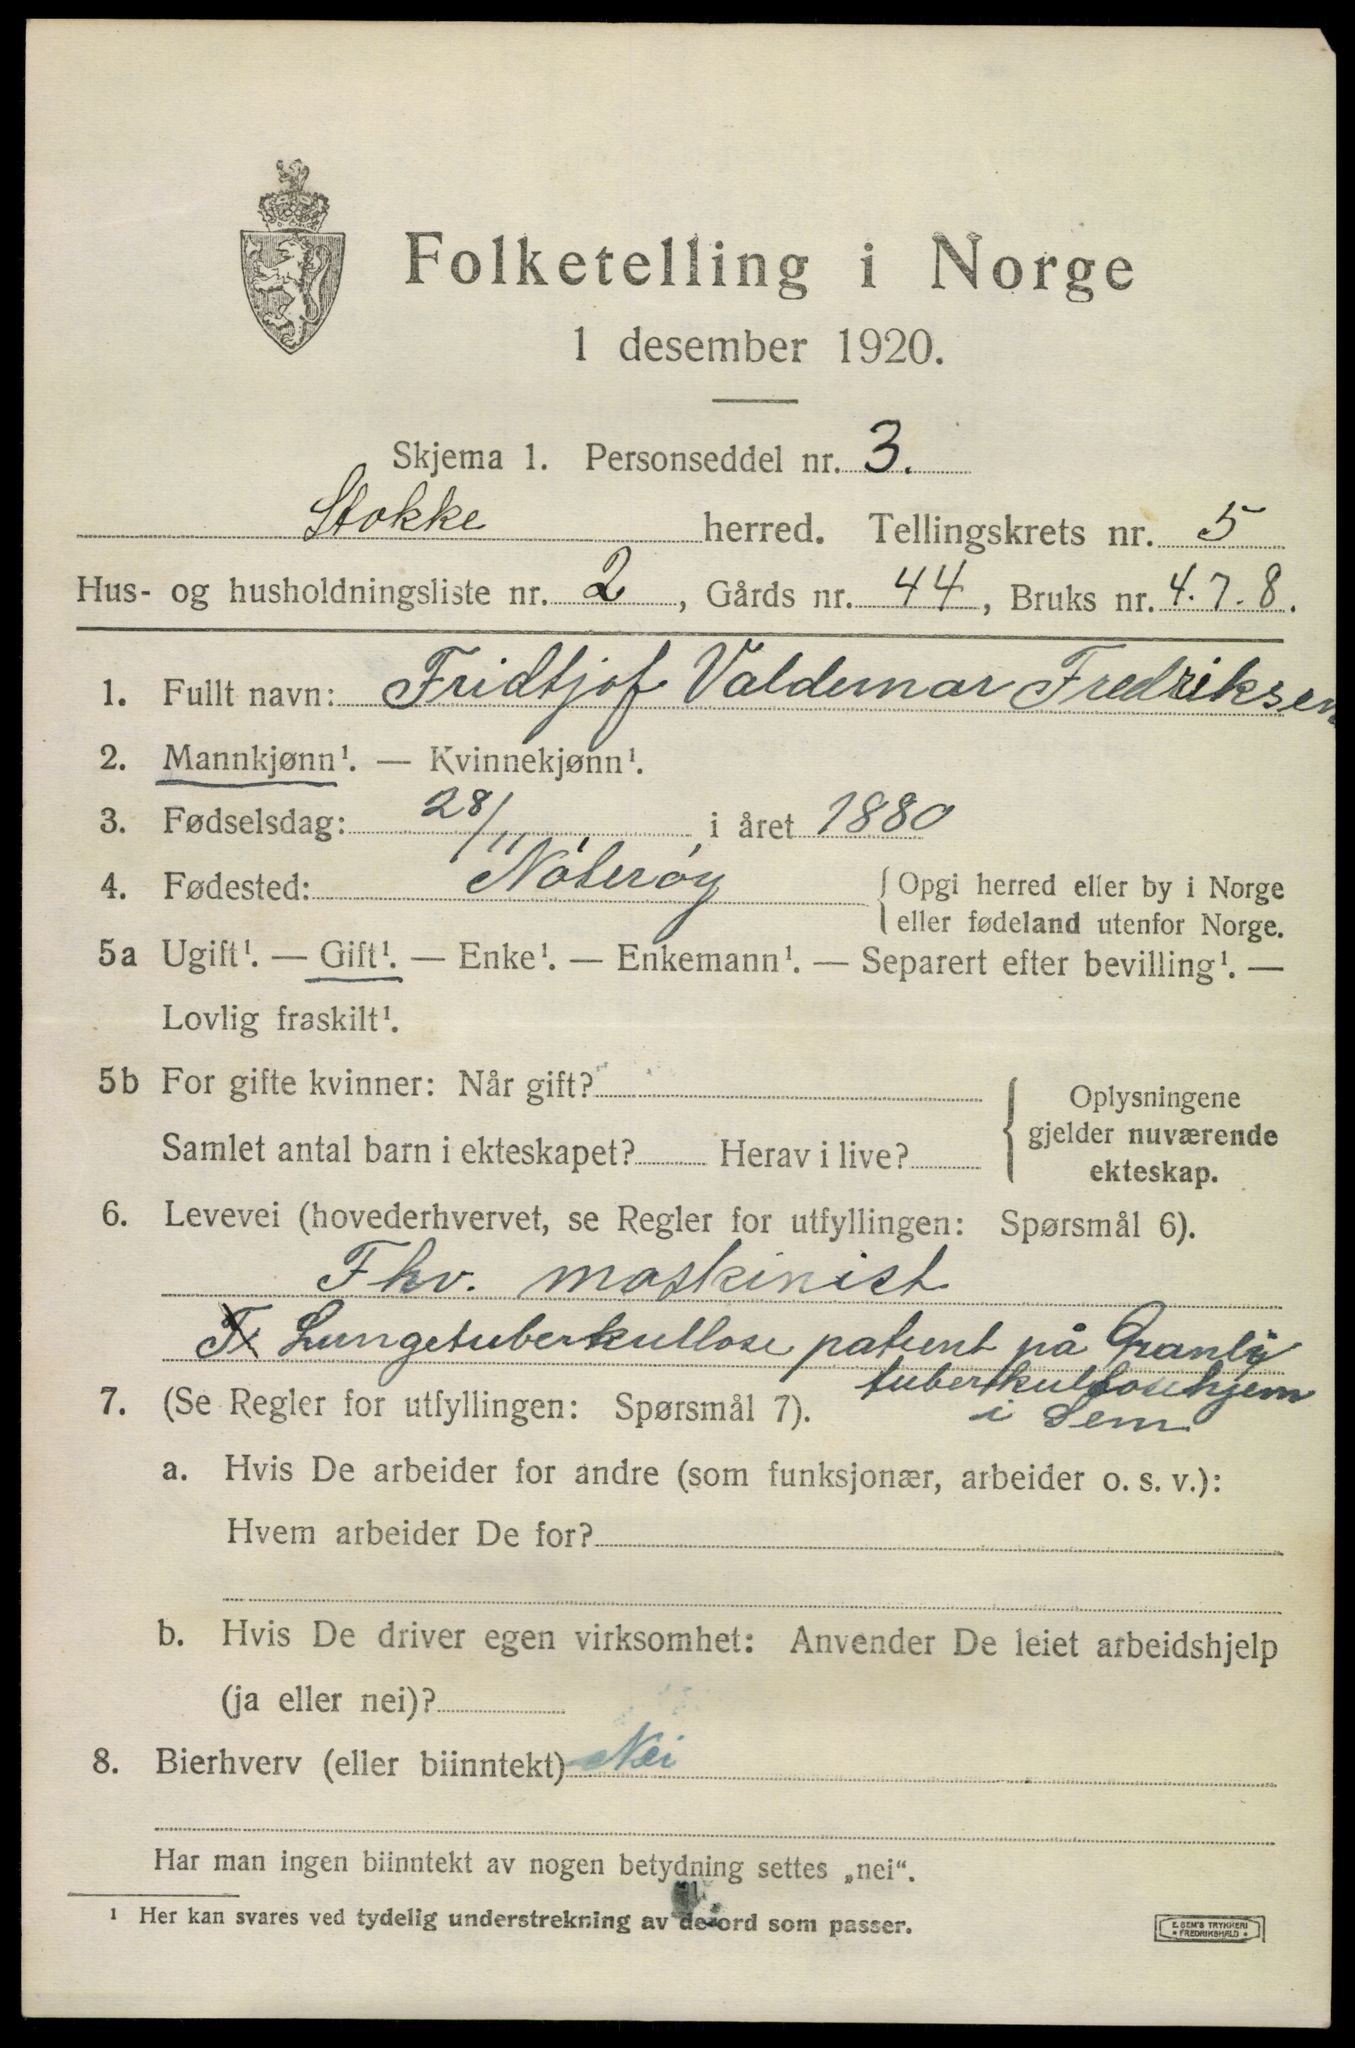 Folketelling i Norge
1 desember 1920.
Skjema 1. Personseddel nr. 3.
Stokke herred. Tellingskrets nr. 5
Hus- og husholdningsliste nr. 2, Gårds nr. 44, Bruks nr. 4. 7. 8.
1. Fullt navn: Fridtjof Valdemar Fredriksen
2. Mannkjønn¹. — Kvinnekjønn¹.
3. Fødselsdag: 28/11 i året 1880
4. Fødested: Nøterøy { Opgi herred eller by i Norge
eller fødeland utenfor Norge.
5a Ugift¹. — Gift¹. — Enke¹. — Enkemann¹. — Separert efter bevilling¹. —
Lovlig fraskilt¹.
5b For gifte kvinner: Når gift?
Samlet antal barn i ekteskapet? Herav i live?
Oplysningene
gjelder nuværende
ekteskap.
6. Levevei (hovederhvervet, se Regler for utfyllingen: Spørsmål 6).
Fhv. maskinist
Lungetuberkulløse patient på Granly
tuberkulløsehjem
i Sem
7. (Se Regler for utfyllingen: Spørsmål 7).
a. Hvis De arbeider for andre (som funksjonær, arbeider o. s. v.):
Hvem arbeider De for?
b. Hvis De driver egen virksomhet: Anvender De leiet arbeidshjelp
(ja eller nei)?
8. Bierhverv (eller biinntekt) Nei
Har man ingen biinntekt av nogen betydning settes „nei“.
¹ Her kan svares ved tydelig understrekning av de ord som passer.
E. SEM'S TRYKKERI
* FREDRIKSHALD *